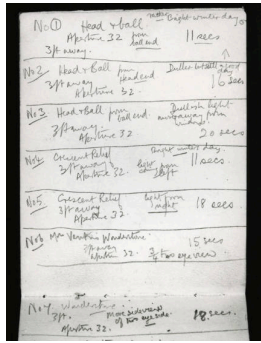 No ① Head & ball rather Bright winter day
Aperture 32 from ball end 11 secs
3ft away.
No 2 Head & Ball from head end Duller but still a good day
3ft away 16 secs
Aperture 32.
No 3 Head & Ball from ball end. Dullish light
3ft away. away from
Aperture 32 20 secs
No 4 Crescent Relief Bright winter day
3ft away light from left 11 secs
Aperture 32.
No 5 Crescent Relief light from right 18 secs.
3ft away
Aperture 32
No 6 Mrs Wardertine.
3ft away 15 secs
Aperture 32. 3/4 two eye view
No 7
3ft. More side view of two eye side. 18 secs.
Aperture 32.